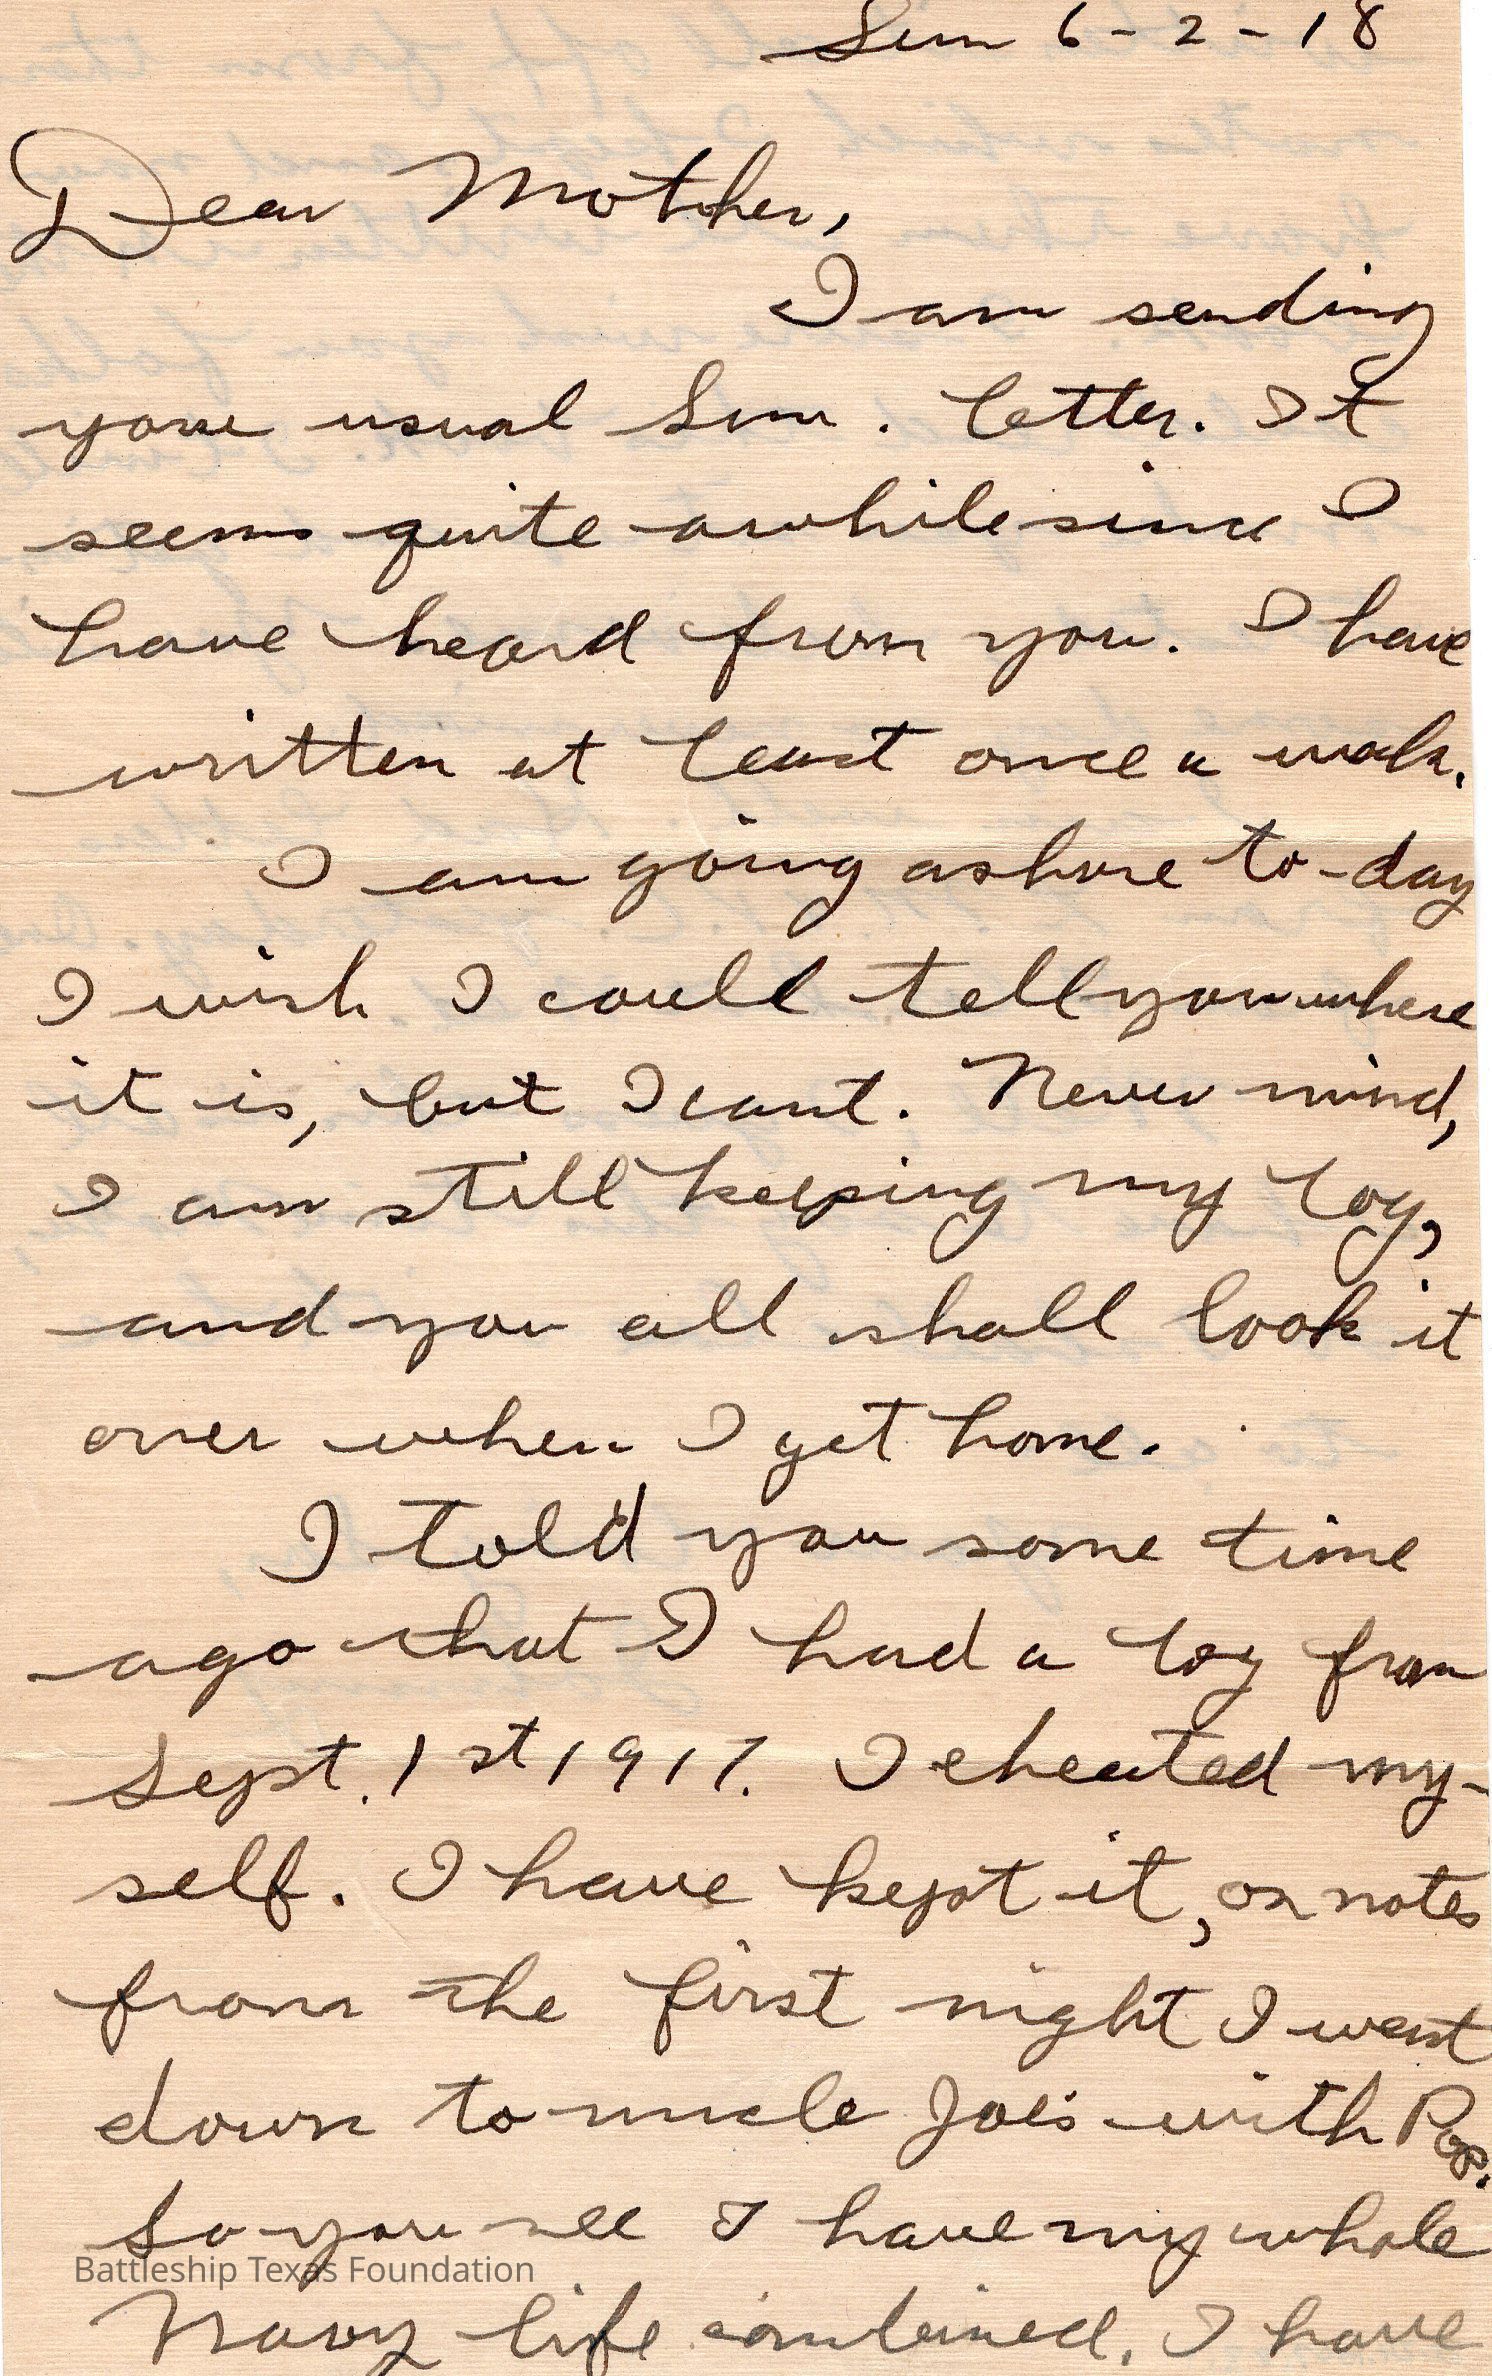 Sun 6-2-18
Dear Mother,
I am sending
your usual Sun. letter. It
seems quite awhile since I
have heard from you. I have
written at least once a week.
I am going ashore to-day
I wish I could tell you where
it is, but I cant. Never mind,
I am still keeping my log,
and you all shall look it
over when I get home.
I told you some time
ago that I had a log from
Sept. 1st 1917. I cheated my-
self. I have kept it, or notes
from the first night I went
down to uncle Joe's with Pop.
So you see I have my whole
Battleship Texas Foundation
Navy life combined. I have